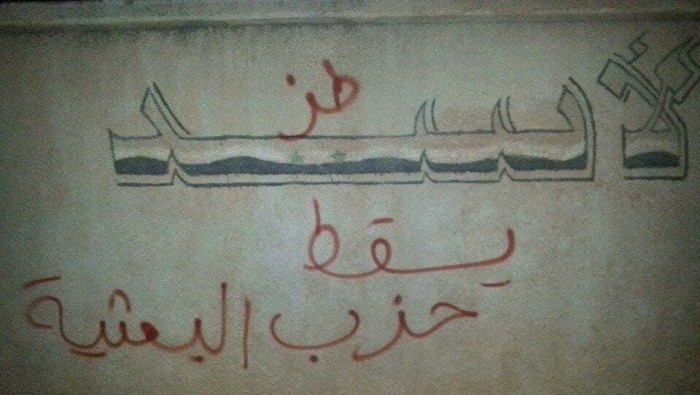 طز
الاسد
يسقط
حزب البعثية